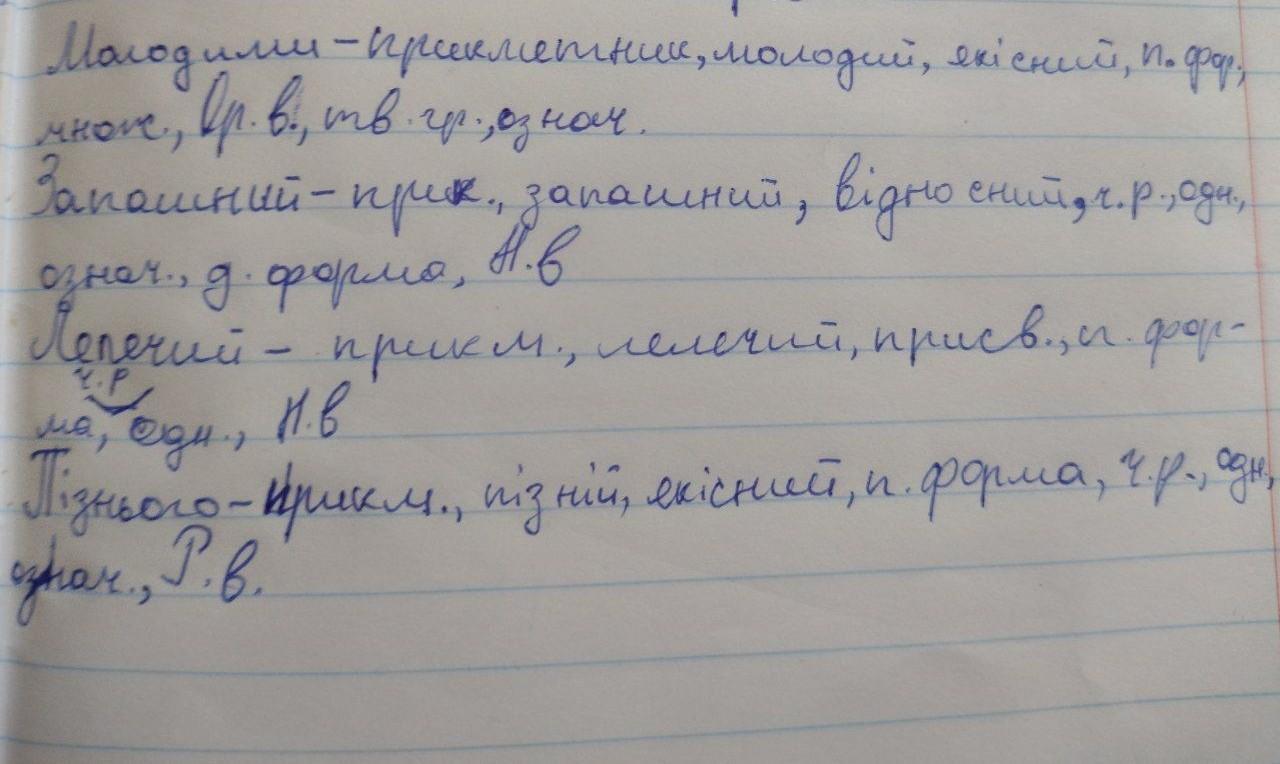 Молодими – прикметник, молодий, якісний, п. фор.,
множ., Ор. в., тв. гр., означ.
Запашний – прик., запашний, відносний, ч. р., одн.,
означ., д. форма, Н. в
Лелечий – прикм., лелечий, присв., п. фор-
ч. р
ма, одн., Н. в
Пізнього – прикм., пізній, якісний, п. форма, ч. р., одн,
означ., Р. в.